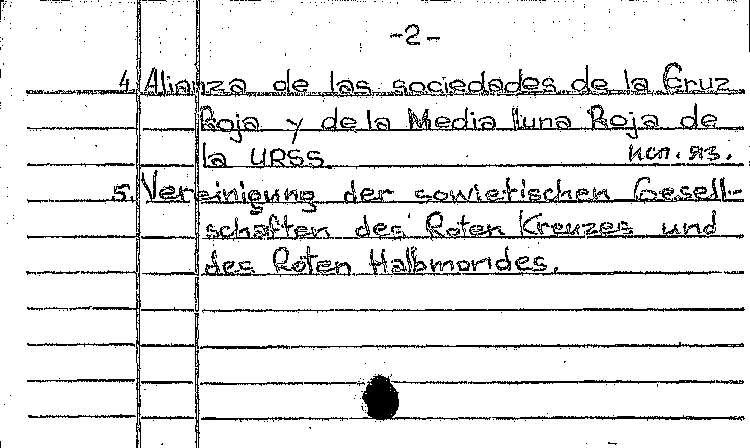 -2-
4. Alianza de las sociedades de la Cruz
Roja y de la Media luna Roja de
la URSS исп. яз.
5. Vereinigung der sowietischen Gesell-
schaften des Roten Kreuzes und
des Roten Halbmondes.